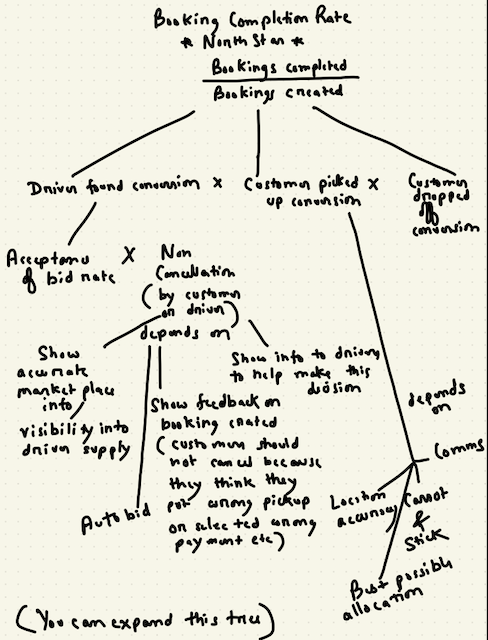 Booking Completion Rate
* North Star *
Bookings completed
Bookings created
Driver found conversion x Customer picked up conversion x Customer dropped off conversion
Acceptance
of bid rate
X
Non
Cancellation
(by customer
or driver)
depends on
Show
accurate
market place
info
visibility into
driver supply
Auto bid
Show feedback on
booking created
(customers should
not cancel because
they think they
put wrong pickup
or selected wrong
payment etc)
Show info to drivers
to help make this
decision
depends
on
Comms
Location
accuracy
Carrot
&
Stick
Best possible
allocation
(You can expand this tree)